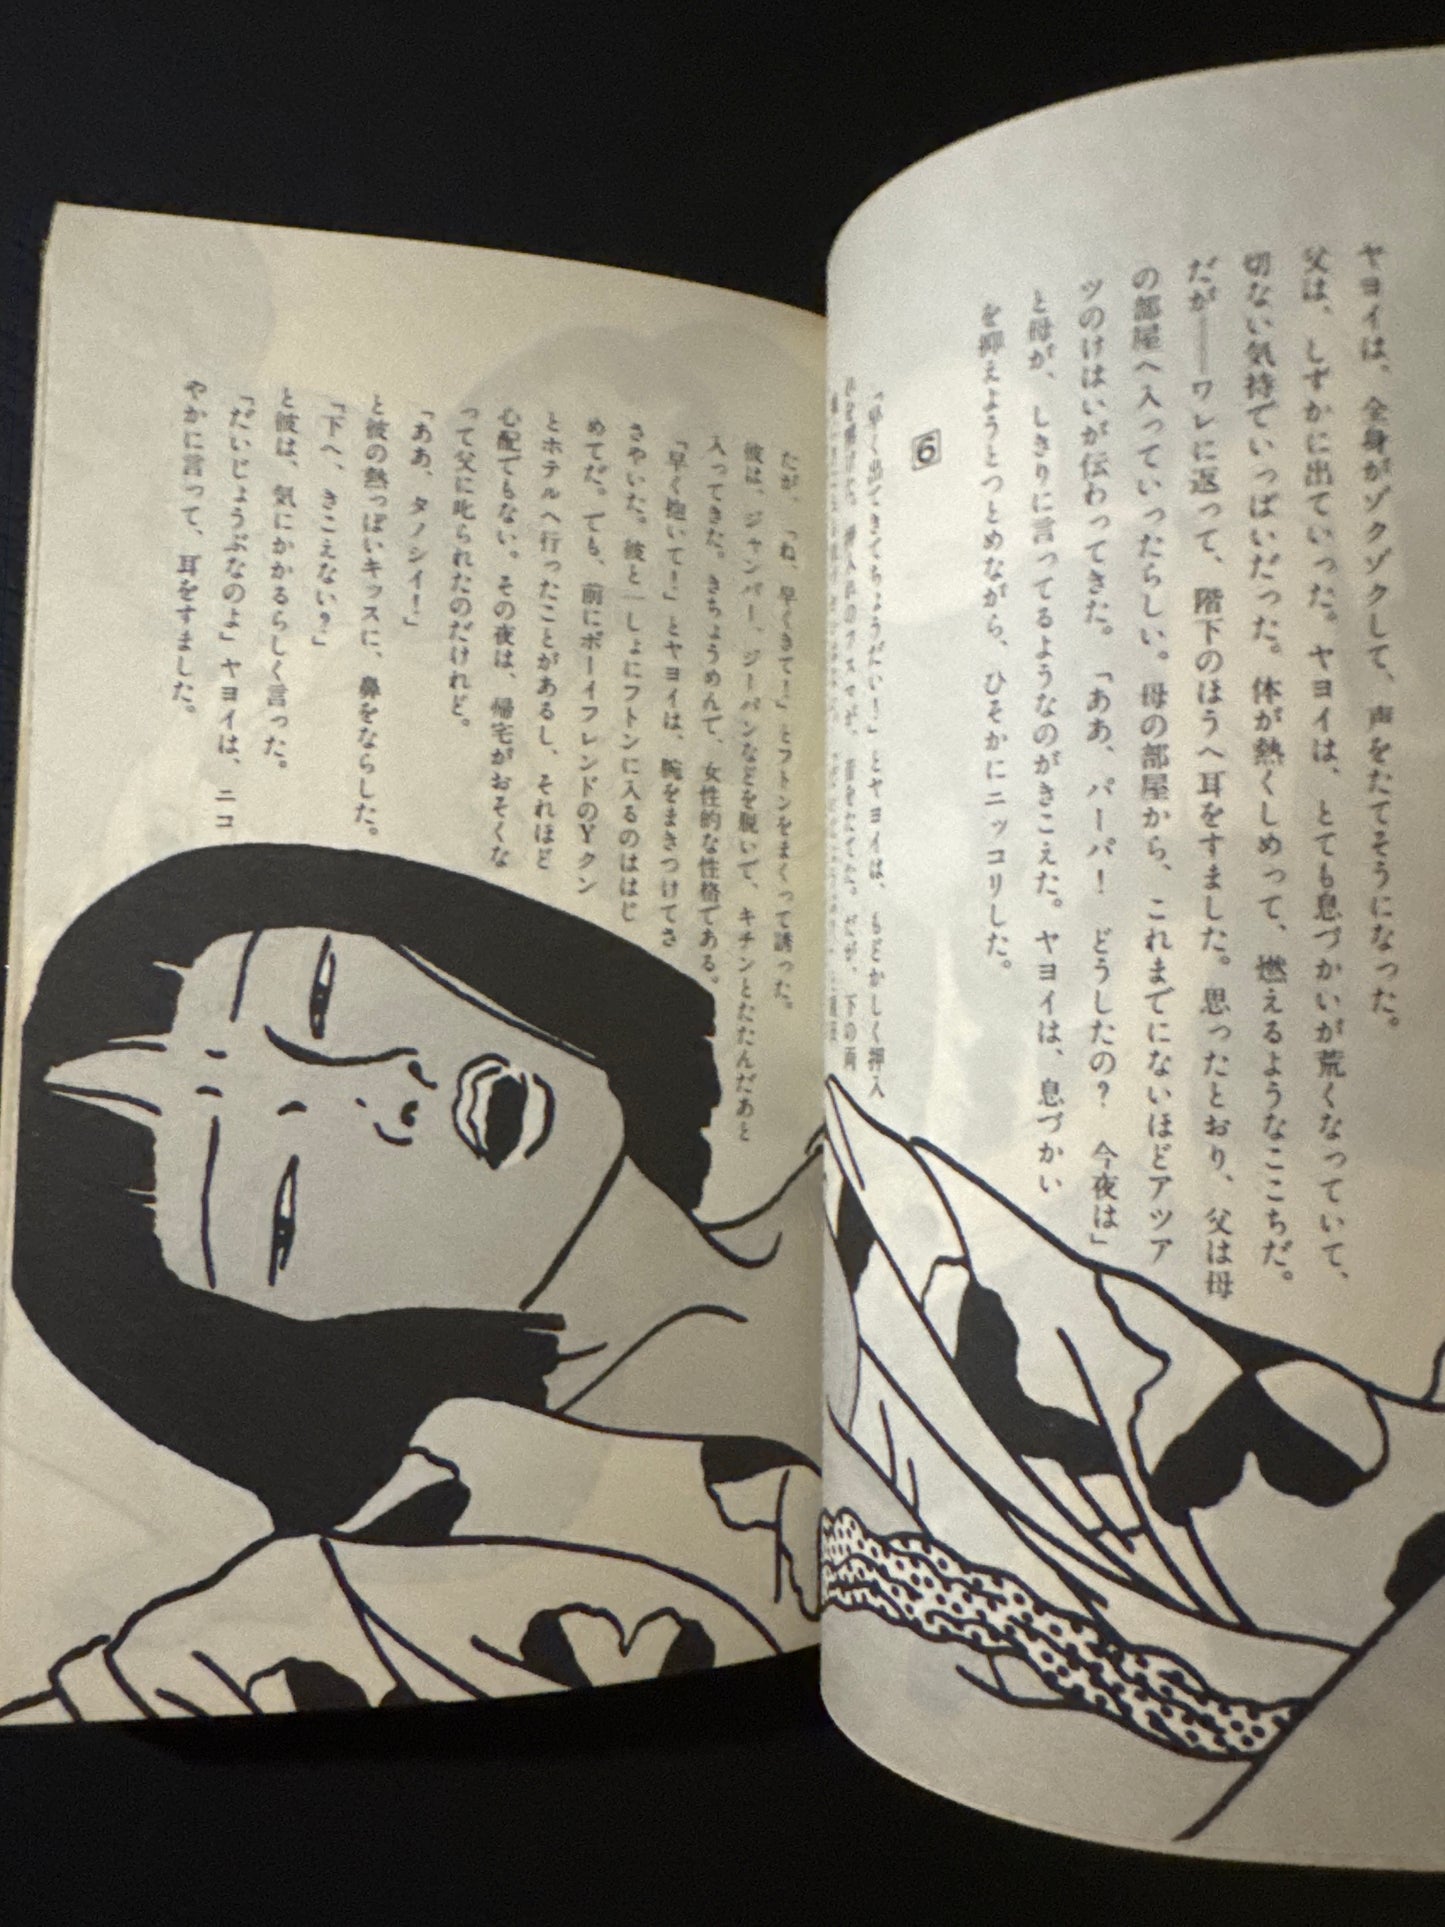 ヤヨイは、全身がゾクゾクして、声をたてそうになった。
父は、しずかに出ていった。ヤヨイは、とても息づかいが荒くなっていて、
切ない気持でいっぱいだった。体が熱くしめって、燃えるようなここちだ。
だが――ワレに返って、階下のほうへ耳をすました。思ったとおり、父は母
の部屋へ入っていったらしい。母の部屋から、これまでにないほどアツア
ツのけはいが伝わってきた。「ああ、パーパ！　どうしたの？　今夜は」
と母が、しきりに言ってるようなのがきこえた。ヤヨイは、息づかい
を抑えようとつとめながら、ひそかにニッコリした。
6
「早く出てきてちょうだい！」とヤヨイは、もどかしく押入
だが、「ね、早くきて！」とフトンをまくって誘った。
彼は、ジャンパー、ジーパンなどを脱いで、キチンとたたんだあと
入ってきた。きちょうめんて、女性的な性格である。
「早く抱いて！」とヤヨイは、腕をまきつけてさ
さやいた。彼と一しょにフトンに入るのははじ
めてだ。ても、前にボーイフレンドのＹクン
とホテルへ行ったことがあるし、それほど
心配でもない。その夜は、帰宅がおそくな
って父に叱られたのだけれど。
「ああ、タノシイ！」
と彼の熱っぽいキッスに、鼻をならした。
「下へ、きこえない？」
と彼は、気にかかるらしく言った。
「だいじょうぶなのよ」ヤヨイは、ニコ
やかに言って、耳をすました。